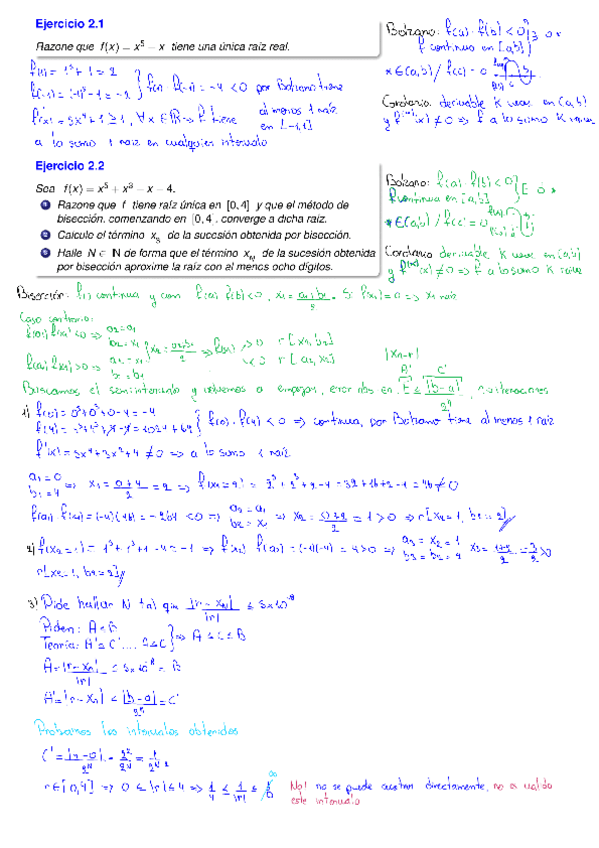 Ejercicio 2.1
Razone que f(x) = x⁵ − x tiene una única raíz real.
Bolzano: f(a)·f(b) < 0
f continua en [a,b]
x ∈ (a,b) / f(c) = 0
f(1) = 1⁵ + 1 = 2
f(-1) = (-1)⁵ - 1 = -2
f(1) f(-1) = -4 < 0 por Bolzano tiene
al menos 1 raíz
en [-1,1]
f'(x) = 5x⁴ + 1 ≥ 1, ∀x ∈ ℝ => f tiene
a lo sumo 1 raíz en cualquier intervalo
Corolario: derivable K veces en (a,b)
y f⁽ᵏ⁾(x) ≠ 0 => f a lo sumo K raíces
Ejercicio 2.2
Sea f(x) = x⁵ + x³ − x − 4.
1 Razone que f tiene raíz única en [0,4] y que el método de
bisección, comenzando en [0,4], converge a dicha raíz.
2 Calcule el término x₃ de la sucesión obtenida por bisección.
3 Halle N ∈ ℕ de forma que el término x_N de la sucesión obtenida
por bisección aproxime la raíz con al menos ocho dígitos.
Bolzano: f(a) f(b) < 0
f continua en [a,b]
x ∈ (a,b) / f(c) = 0
Corolario derivable K veces en (a,b)
y f⁽ᵏ⁾(x) ≠ 0 => f a lo sumo K raíces
Bisección: f(x) continua y con f(a) f(b) < 0, x₁ = (a₁+b₁)/2 . Si f(x₁) = 0 => x₁ raíz
Caso contrario:
f(a₁) f(x₁) < 0 => a₂ = a₁
b₂ = x₁
f(a₁) f(x₁) > 0 =>
b₂ = b₁
x₂ = (a₂+b₂)/2 => f(x₂)
> 0 r[x₂, b₂]
< 0 r[a₂, x₂]
|xₙ-r|
A' C'
Buscamos el semiintervalo y volvemos a empezar, error abs en E ≤ |b-a|/2ⁿ, n iteraciones
1) f(0) = 0⁵+0³+0-4 = -4
f(4) = 4⁵+4³+4-4 = 1024 + 64
f(0)·f(4) < 0 => continua, por Bolzano tiene al menos 1 raíz
f'(x) = 5x⁴+3x²+4 ≠ 0 => a lo sumo 1 raíz
a₁ = 0
b₁ = 4 => x₁ = (0+4)/2 = 2 => f(x₁=2) = 2⁵ + 2³ + 2 - 4 = 32+16+2-4 = 46 ≠ 0
f(a₁) f(x₁) = (-4)(46) = -264 < 0 => a₂ = a₁
b₂ = x₁ => x₂ = (0+2)/2 = 1 > 0 => r[x₂=1, b₂=2]
2) f(x₂=1) = 1⁵ + 1³ + 1 - 4 = -1 => f(x₂) f(a₂) = (-1)(-4) = 4 > 0 => a₃ = x₂ = 1
b₃ = b₂ = 4
r[x₂=1, b₂=2]
3) Pide hallar N tal que |r - x_N|/|r| ≤ 5×10⁻⁸
Piden: A ≤ B
Teoría: A' ≤ C' .... A ≤ C
=> A ≤ C ≤ B
A = |r - x_N|/|r| ≤ 5×10⁻⁸ = B
A' = |r - x_N| ≤ |b-a|/2ⁿ = C'
Probamos los intervalos obtenidos
C' = |4-0|/2ᴺ = 2²/2ᴺ
r ∈ [0,4] => 0 ≤ |r| ≤ 4 => 1/4 ≤ 1/|r| ≤ 1/0 ∞
No! no se puede acotar directamente, no es valido
este intervalo